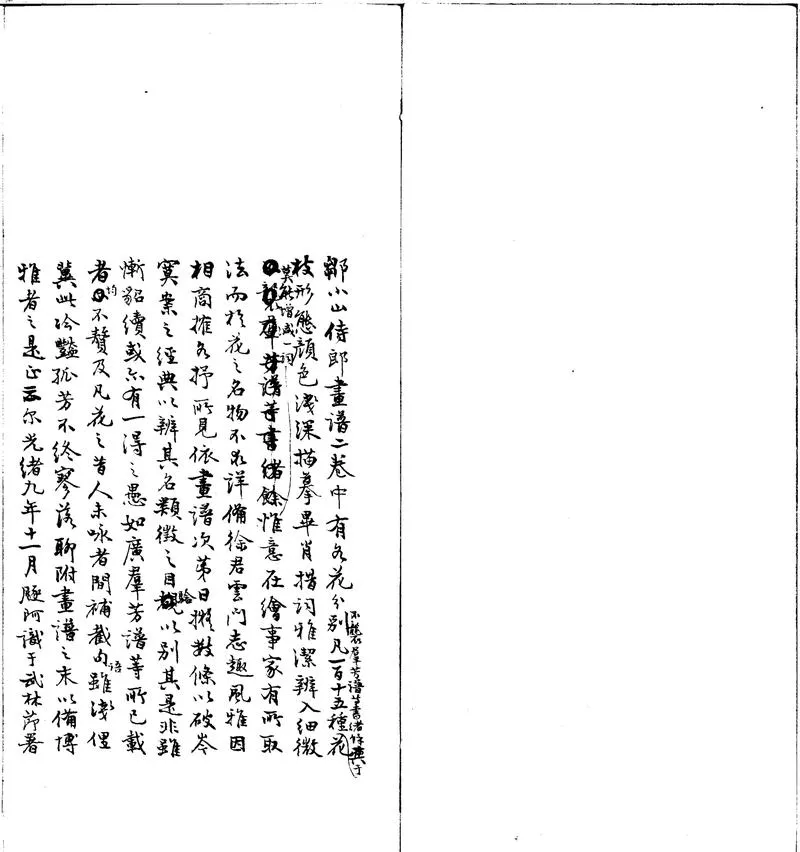 鄒小山侍郎畫譜二卷中有各花分別凡一百十五種花
不襲羣芳譜等書緒餘
枝形態顏色淺深描摹畢肖措詞雅潔辨入細微
莫能增減一詞
襲羣芳譜等書緒餘惟意在繪事家有所取
法而於花之名物不求詳備徐君雲門志趣風雅因
相商搉各抒所見依畫譜次第日擬數條以破岑
寞案之經典以辨其名類徵之目以別其是非雖
慚貂續或亦有一得之愚如廣羣芳譜等所已載
者均不贅及凡花之昔人未咏者間補截句雖淺俚
語
冀此冷豔孤芳不終寥落聊附畫譜之末以備博
雅者之是正云尔光緒九年十一月 阿識于武林節署